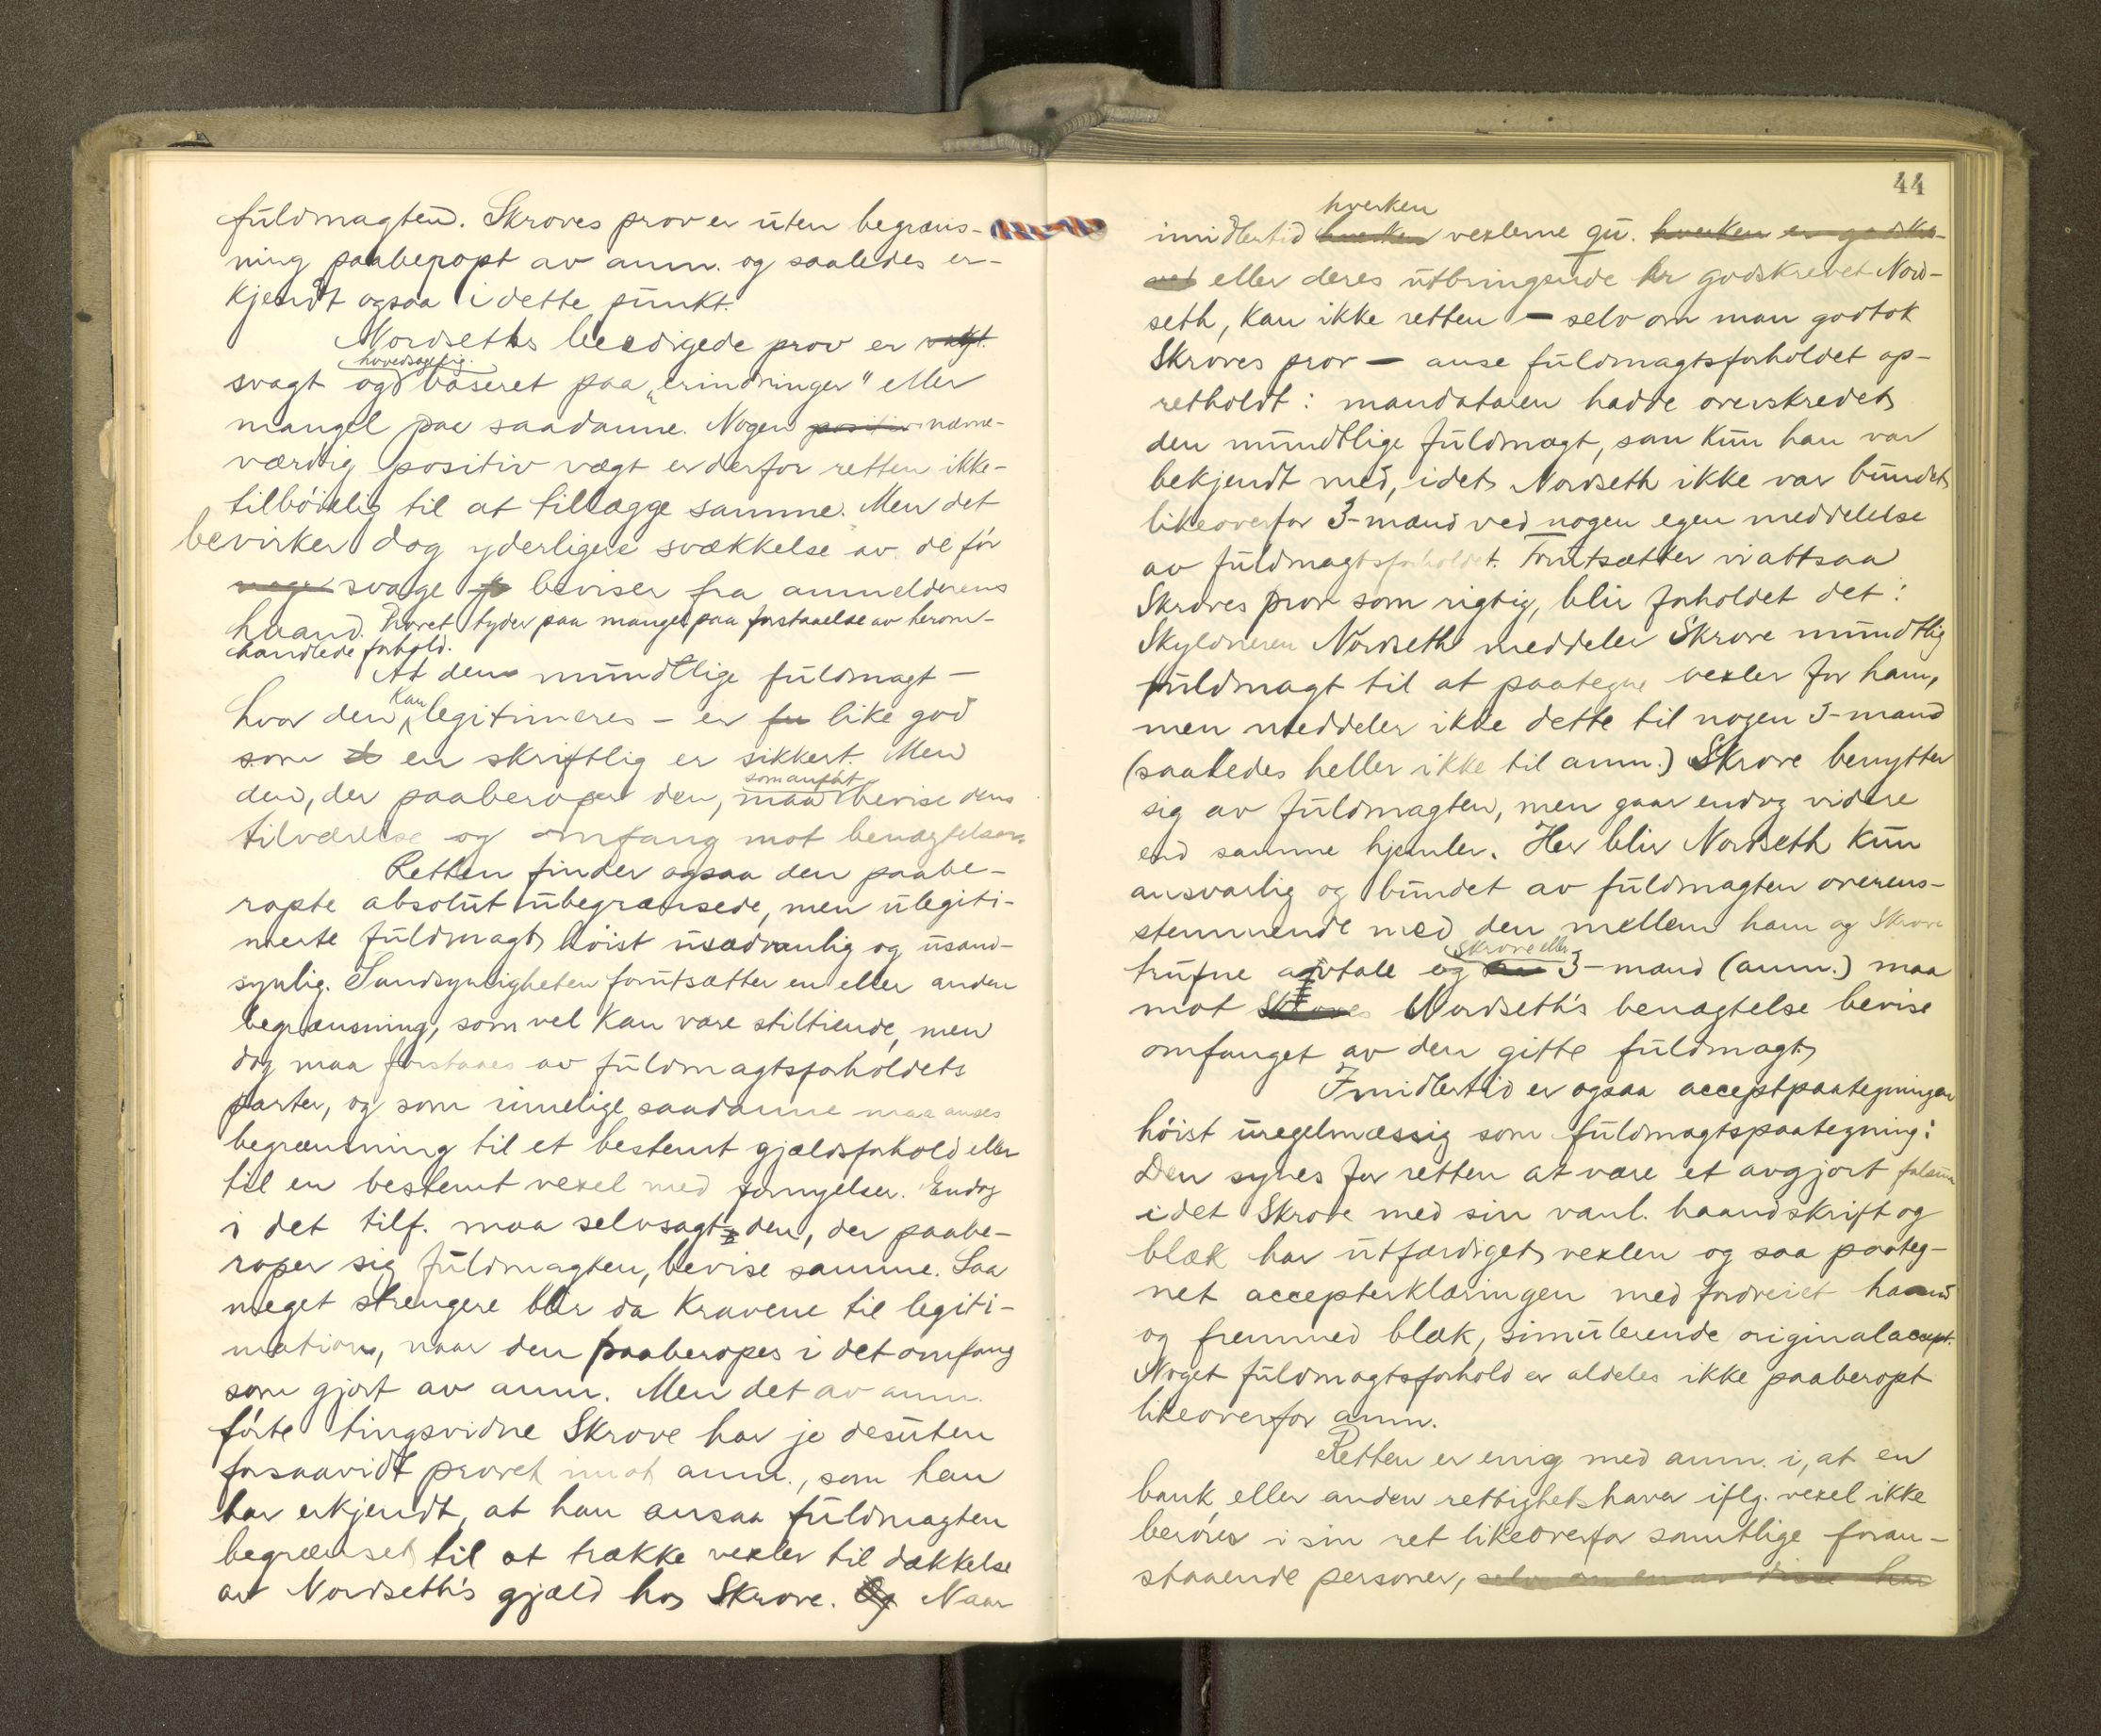 fuldmagten. Skroves prov er uten begræns-
ning paaberopt av anm. og saaledes er-
kjendt ogsaa i dette punkt.
Nordseths beedigede prov er vagt
hovedsagelig
svagt og baseret paa „erindringer" eller
mangel paa saadanne. Nogen positiv nævne-
værdig positiv vægt er derfor retten ikke
tilbøielig til at tillægge samme. Men det
bevirker dog yderligere svækkelse av de før
svage beviser fra anmelderens
haand. Provet tyder paa mangel paa forstaaelse av herom-
handlede forhold.
At den mundtlige fuldmagt —
kan
hvor den legitimeres — er like god
som en skriftlig er sikkert. Men
som anført
den, der paaberoper den, maa bevise dens
tilværelse og omfang mot benægtelsen.
Retten finder ogsaa den paabe-
ropte absolut ubegrænsede, men ulegiti-
merte fuldmagt høist usædvanlig og usand-
synlig. Sandsynligheten forutsætter en eller anden
begrænsning, som vel kan være stiltiende, men
dog maa forstaaes av fuldmagtsforholdets
parter, og som rimelige saadanne maa anses
begrænsning til et bestemt gjældsforhold eller
til en bestemt vexel med fornyelser. Endog
i det tilf. maa selvsagt den, der paabe-
roper sig fuldmagten, bevise samme. Saa
meget strengere blir da kravene til legiti-
mation, naar den paaberopes i det omfang
som gjort av anm. Men det av anm.
førte tingsvidne Skrove har jo desuten
forsaavidt provet imot anm., som han
har erkjendt, at han ansaa fuldmagten
begrænset til at trække vexler til dækkelse
av Nordseth's gjæld hos Skrove. Og Naar
44
hverken
imidlertid hverken vexlerne qu. hverken er godskre-
vet eller deres utbringende er godskrevet Nord-
seth, kan ikke retten — selv om man godtok
Skroves prov — anse fuldmagtsforholdet op-
retholdt: mandataren hadde overskredet
den mundtlige fuldmagt, som kun han var
bekjendt med, idet Nordseth ikke var bundet
likeoverfor 3-mand ved nogen egen meddelelse
av fuldmagtsforholdet. Forutsætter vi altsaa
Skroves prov som rigtig, blir forholdet det:
Skyldneren Nordseth meddeler Skrove mundtlig
fuldmagt til at paategne vexler for ham,
men meddeler ikke dette til nogen 3-mand
(saaledes heller ikke til anm.) Skrove benytter
sig av fuldmagten, men gaar endog videre
end samme hjemler. Her blir Nordseth kun
ansvarlig og bundet av fuldmagten overens-
stemmende med den mellem ham og Skrove
Skrove eller
trufne avtale og 3-mand (anm.) maa
mot Skroves Nordseth's benægtelse bevise
omfanget av den gitte fuldmagt.
Imidlertid er ogsaa acceptpaategningen
høist uregelmæssig som fuldmagtspaategning:
Den synes for retten at være et avgjort falsum
idet Skrove med sin vanl. haandskrift og
blæk har utfærdiget vexlen og saa paateg-
net accepterklæringen med fordreiet haand
og fremmed blæk, simulerende originalaccept.
Noget fuldmagtsforhold er aldeles ikke paaberopt
likeoverfor anm.
Retten er enig med anm. i, at en
bank eller anden rettighetshaver iflg. vexel ikke
berøres i sin ret likeoverfor samtlige foran-
staaende personer, selv om en av disse har